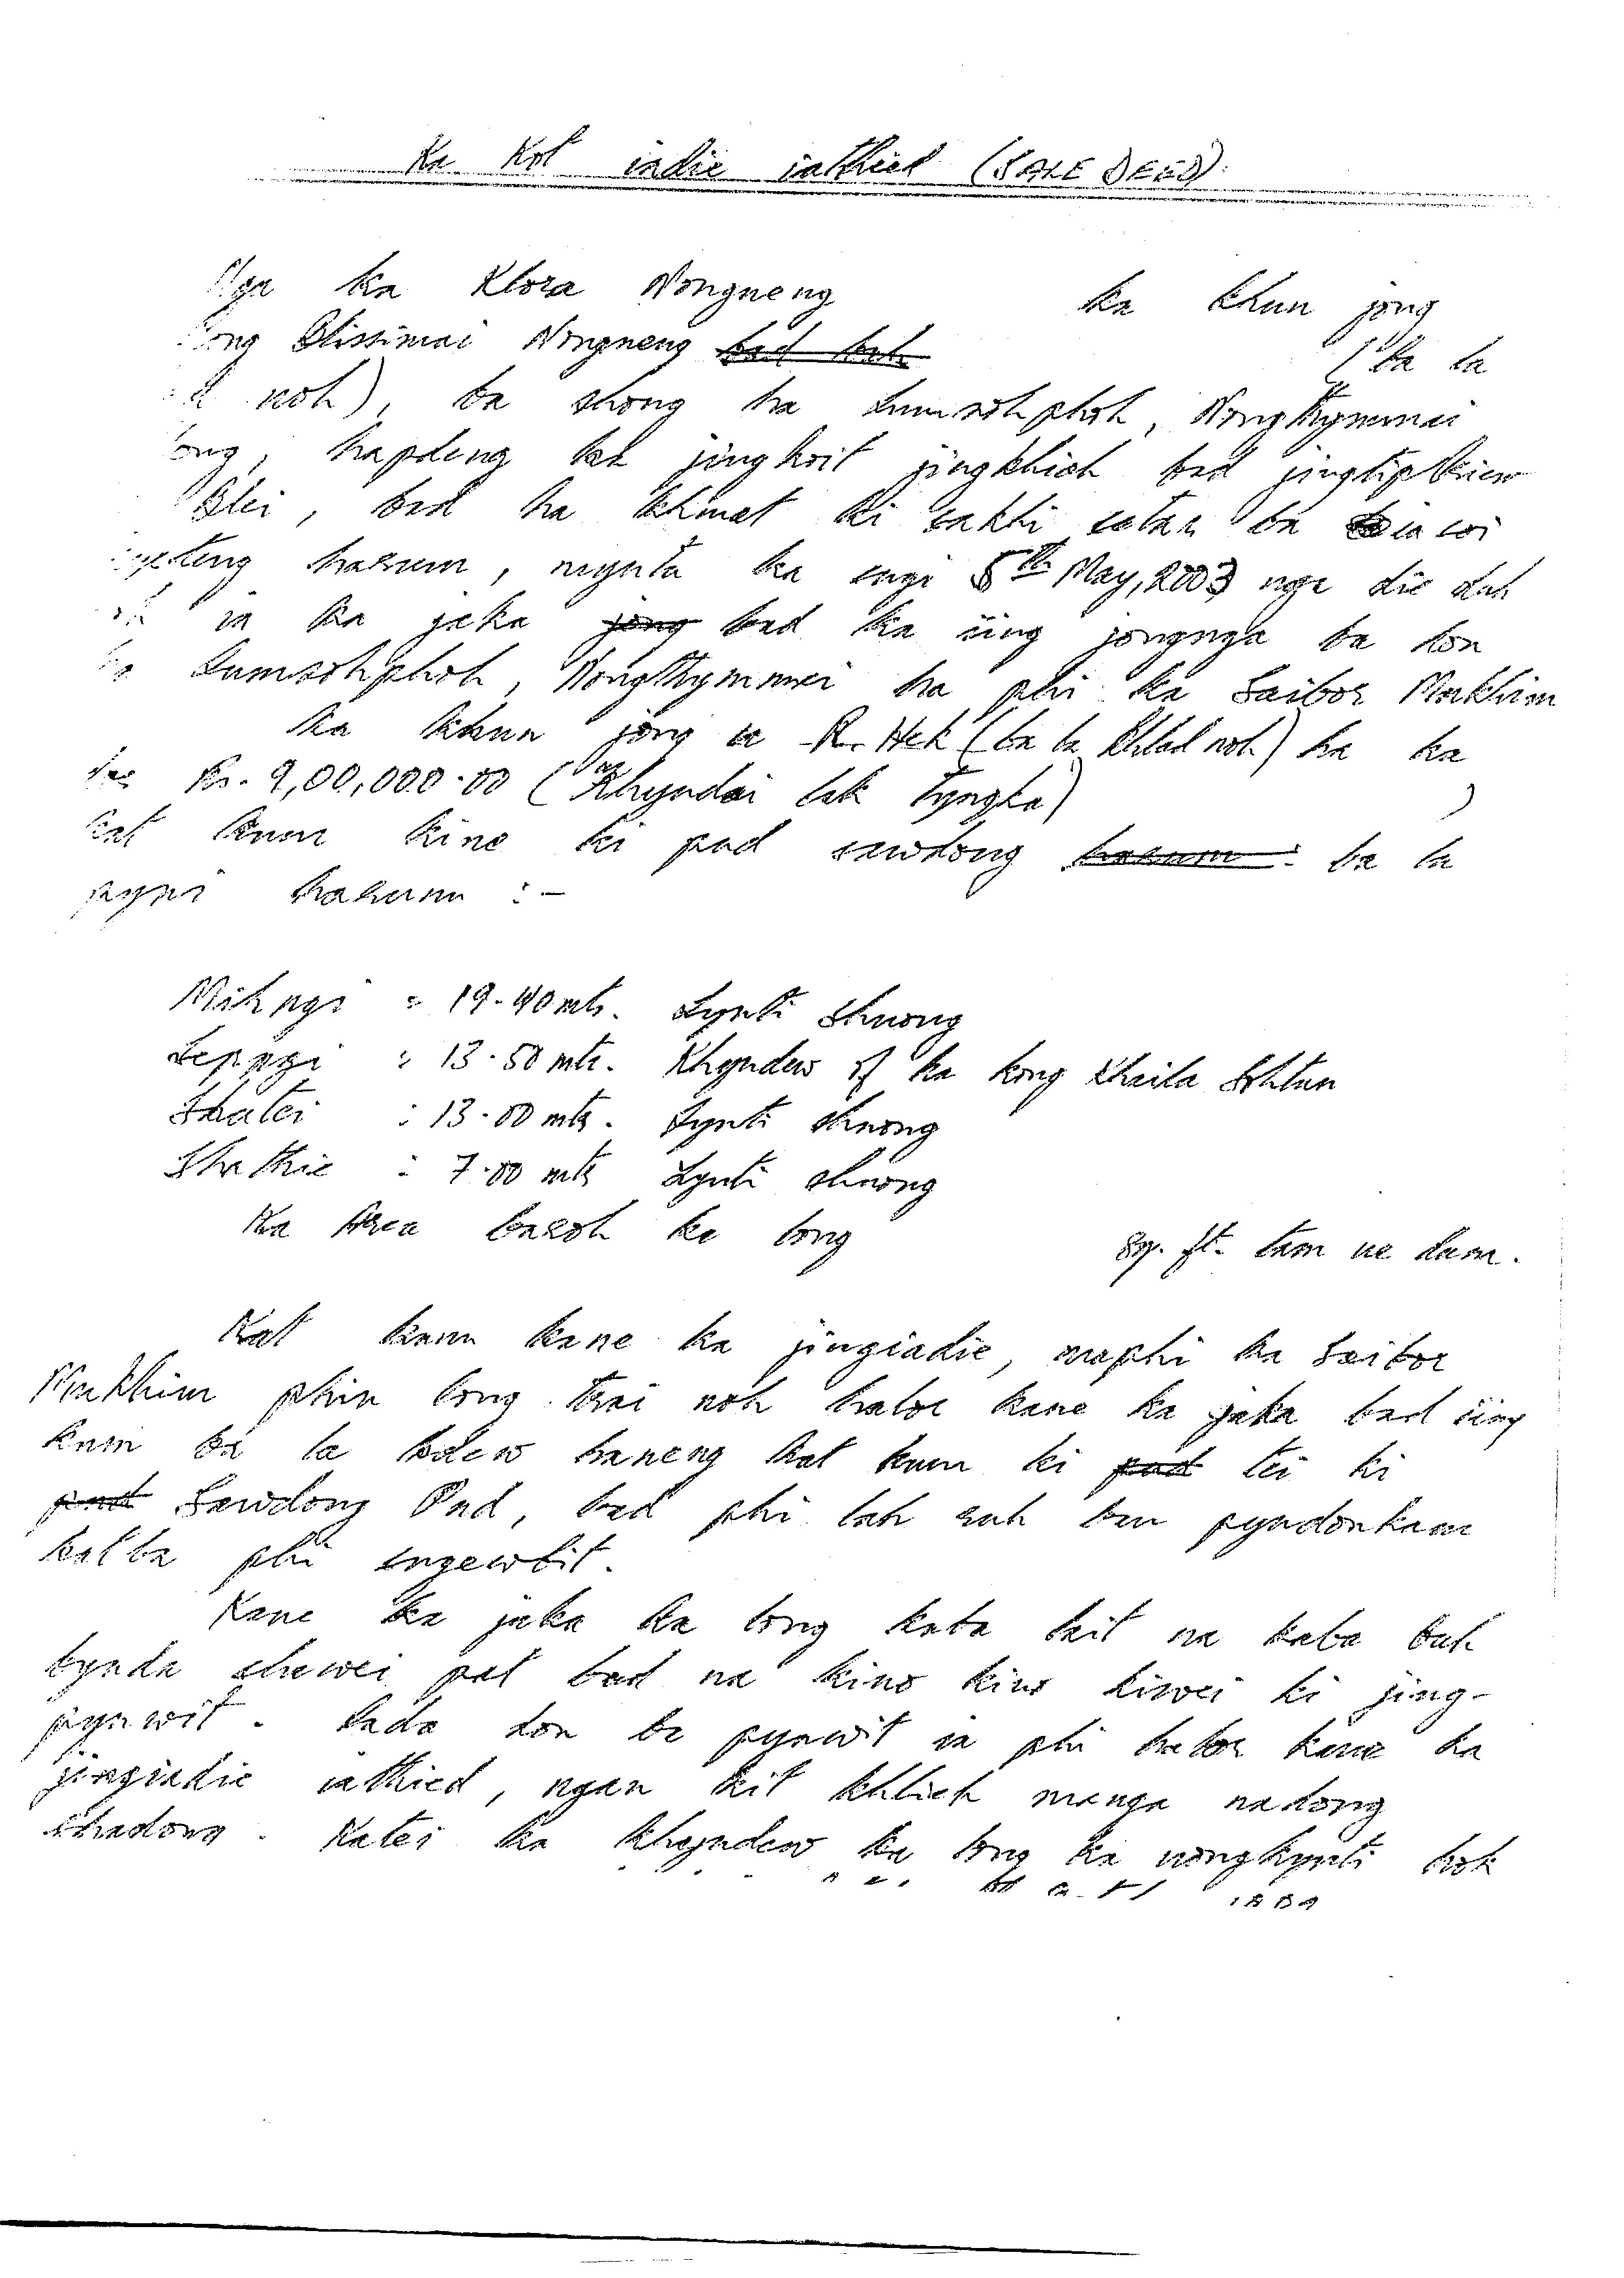 Ka Kot iadie iathied (SALE DEED)
Nga ka Klora Nongneng ka khun jong
Blissimai Nongneng bad bah (ba la
noh), ba shong ha Lumsohphoh, Nongthymmai
hapdeng ka jingkoit jingkhiah bad jingtip briew
Blei, bad ha khmat ki sakhi satar ba ia soi
harum, mynta ka sngi 5th May, 2003 nga die duh
ia ka jaka jong bad ka iing jongnga ba don
Lumsohphoh, Nongthymmai ha phi ka Saibor Mukhim
ka khun jong u R. Hek (ba la khlad noh) ha ka
dor Rs. 9,00,000.00 (Khyndai lak tyngka)
kat kum kine ki pud sawdong harum ba la
pyni harum :-
Mihngi = 19.40 mts. Lynti shnong
Sepngi : 13.50 mts. Khyndew of ka kong Khaila Sohtun
Shatei : 13.00 mts. Lynti shnong
Shathie : 7.00 mts Lynti shnong
Ka Area baroh ka long sq. ft. tam ne duna.
Kat kum kane ka jingiadie, maphi ka Saibor
Mukhim phin long trai noh halor kane ka jaka bad iing
kum ba la kdew haneng kat kum ki pud tei ki
pud Sawdong Pud, bad phi lah ruh ban pyndonkam
katba phi sngewbit.
Kane ka jaka ka long kaba khit na kaba buh
bynda shawei pat bad na kino kino kiwei ki jing-
pynwit. Lada don ba pynwit ia phi halor kane ka
jingiadie iathied, ngan kit khlieh manga nadong
shadong. Katei ka khyndew ka long ka nongkynti hok